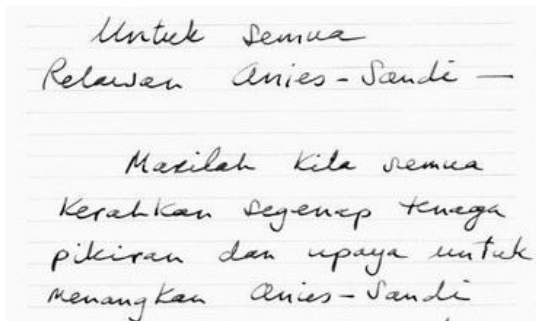 Untuk semua
Relawan Anies-Sandi —
Marilah kita semua
kerahkan segenap tenaga
pikiran dan upaya untuk
menangkan Anies-Sandi